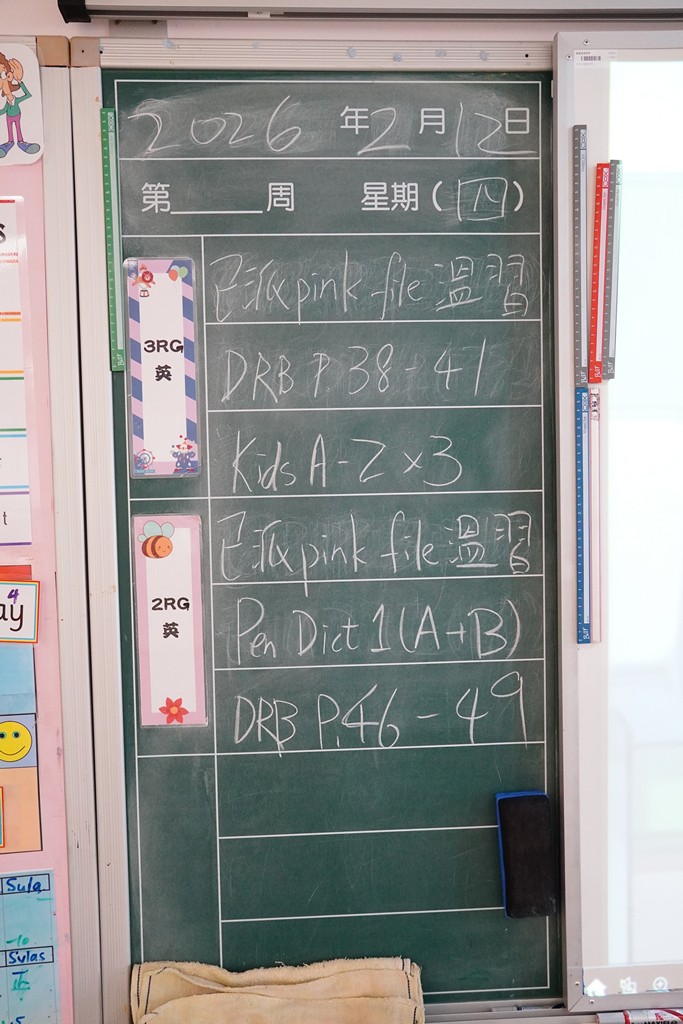 2026年2月12日
第____周 星期(四)
3RG
英
已派pink file 溫習
DRB P 38-41
Kids A-Z x3
2RG
英
已派pink file 溫習
Pen Dict 1(A+B)
DRB P.46-49
s
t
4
ay
Sula
Sulas